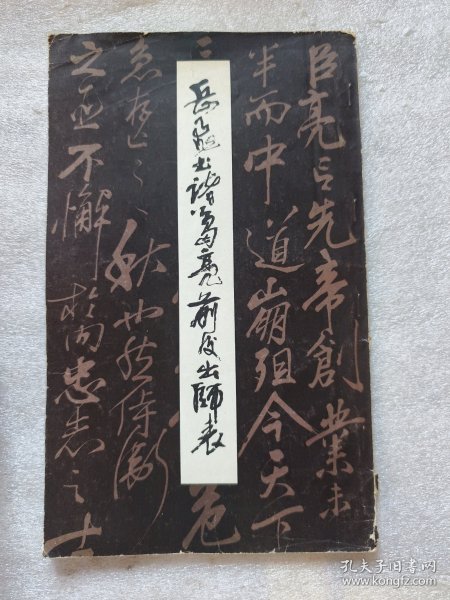 臣亮言先帝創業未
半而中道崩殂今天下
三
危
急存亡之秋也然侍衛
之臣不懈於內忠志之士
岳飛书諸葛亮前後出師表
孔夫子旧书网
www.kongfz.com